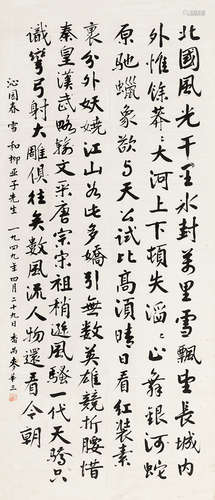 北國風光千里冰封萬里雪飄望長城內
外惟餘莽〻大河上下頓失滔〻山舞銀河蛇
原馳蠟象欲與天公試比高須晴日看紅裝素
裹分外妖嬈江山如此多嬌引無數英雄競折腰惜
秦皇漢武略輸文采唐宗宋祖稍遜風騷一代天驕只
識彎弓射大雕俱往矣數風流人物還看今朝
沁园春 雪 和柳亚子先生 一九四九年四月二十九日